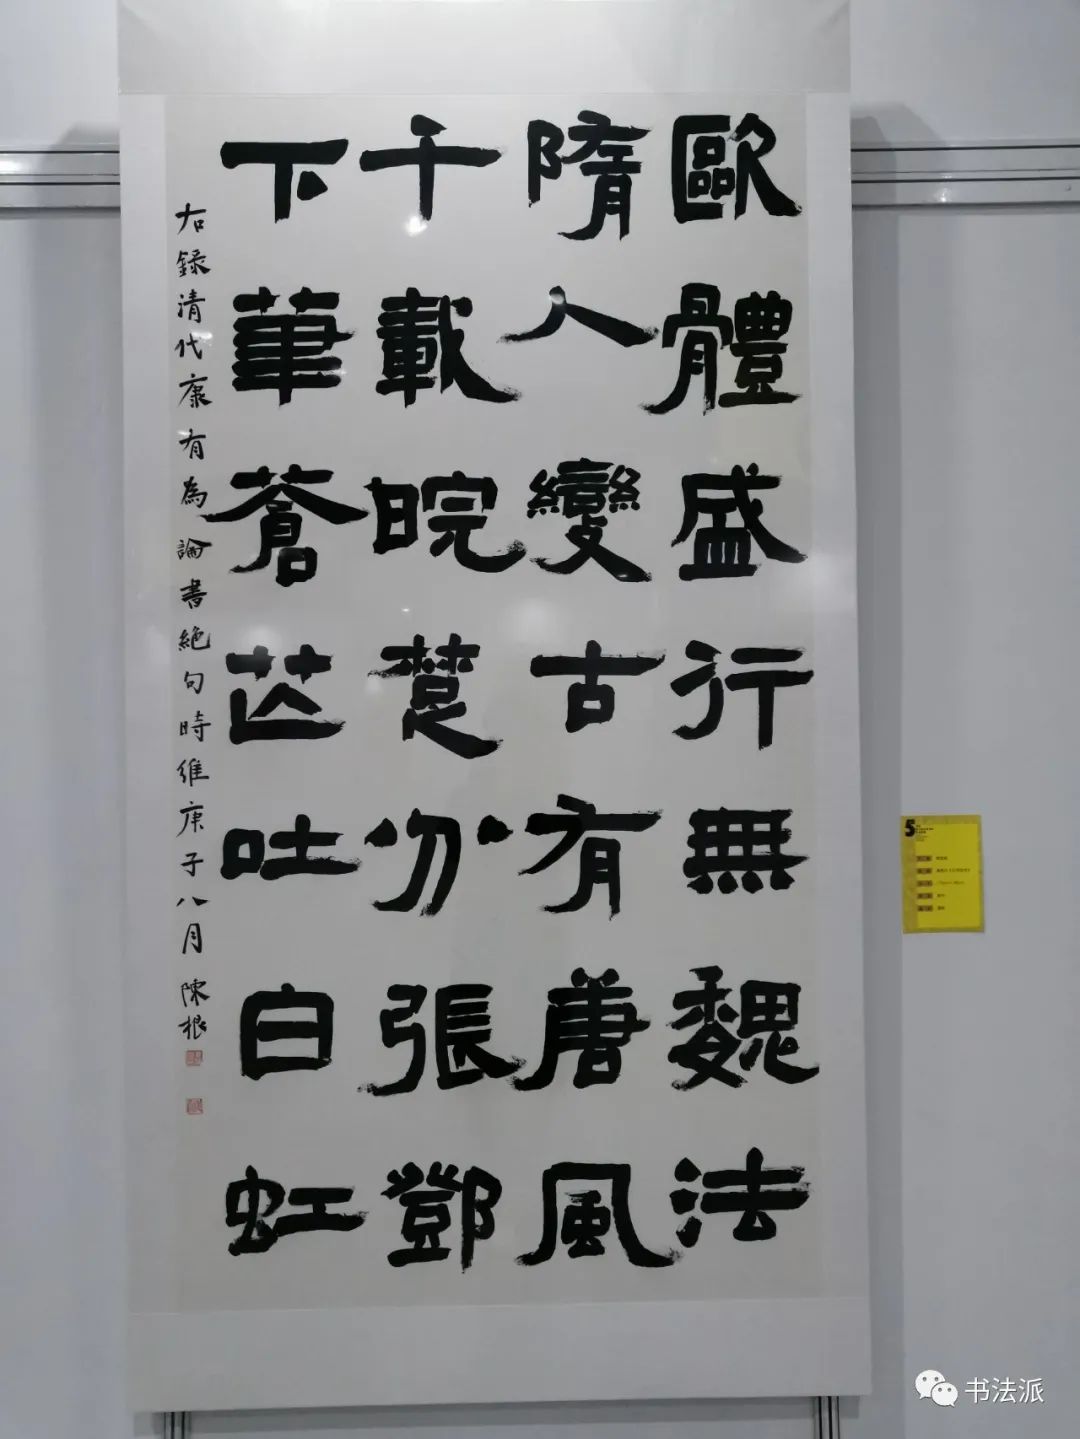 歐體盛行無魏法
隋人變古有唐風
千載皖楚分張鄧
下筆蒼芒吐白虹
右録清代康有為論書絶句時維庚子八月陳根
5
书法派